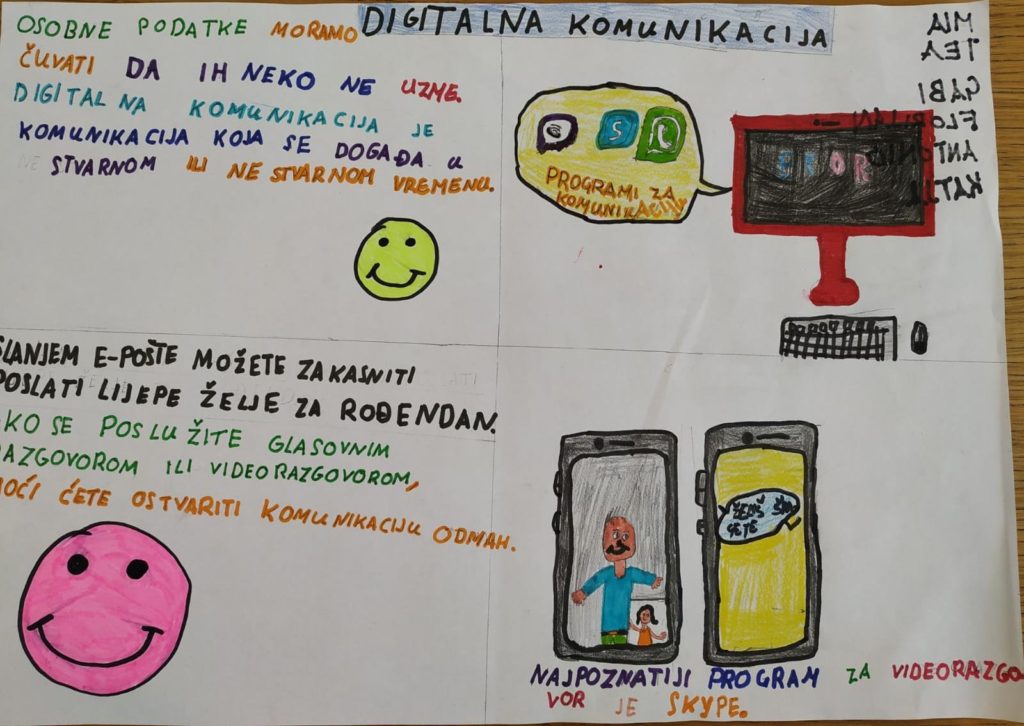 DIGITALNA KOMUNIKACIJA
OSOBNE PODATKE MORAMO
ČUVATI DA IH NEKO NE UZME.
DIGITALNA KOMUNIKACIJA JE
KOMUNIKACIJA KOJA SE DOGAĐA U
STVARNOM ILI NE STVARNOM VREMENU.
MIA
TEA
GABI
FLORIJAN
ANTONIO
S
PROGRAMI ZA
KOMUNIKACIJU
SLANJEM E-POŠTE MOŽETE ZAKASNITI
POSLATI LIJEPE ŽELJE ZA ROĐENDAN.
KO SE POSLUŽITE GLASOVNIM
AZGOVOROM ILI VIDEORAZGOVOROM,
OĆI ĆETE OSTVARITI KOMUNIKACIJU ODMAH.
NAJPOZNATIJI PROGRAM ZA VIDEORAZGO
VOR JE SKYPE.